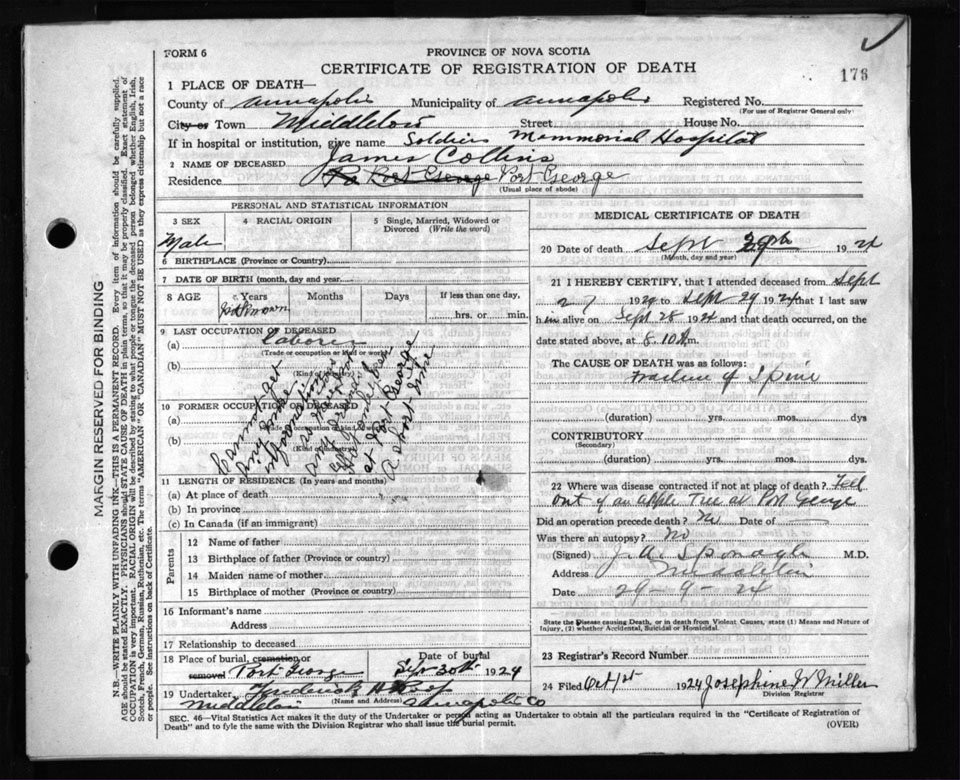 FORM 6
PROVINCE OF NOVA SCOTIA
CERTIFICATE OF REGISTRATION OF DEATH
176
1 PLACE OF DEATH—
County of Annapolis Municipality of Annapolis Registered No.
(For use of Registrar General only)
City or Town Middleton Street House No.
If in hospital or institution, give name Soldiers Memmorial Hospital
2 NAME OF DECEASED James Collins
Residence Po Port George Port George
(Usual place of abode)
PERSONAL AND STATISTICAL INFORMATION
3 SEX 4 RACIAL ORIGIN 5 Single, Married, Widowed or Divorced (Write the word)
Male
6 BIRTHPLACE (Province or Country)
7 DATE OF BIRTH (month, day and year)
8 AGE Years Months Days If less than one day,
hrs. or min.
9 LAST OCCUPATION OF DECEASED
(a) Laborer
(Trade or occupation or kind or work)
(b)
(Kind of industry)
10 FORMER OCCUPATION OF DECEASED
(a)
(b)
Cannot get
any other
information
at Port George
a short time
11 LENGTH OF RESIDENCE (In years and months)
(a) At place of death
(b) In province
(c) In Canada (if an immigrant)
Parents
12 Name of father
13 Birthplace of father (Province or country)
14 Maiden name of mother
15 Birthplace of mother (Province or country)
16 Informant's name
Address
17 Relationship to deceased
18 Place of burial, cremation or removal Port George Date of burial Sep 30th 1924
19 Undertaker Frederick H
(Name and Address)
Middleton Annapolis Co
MEDICAL CERTIFICATE OF DEATH
20 Date of death Sept 29th 1924
(Month, day and year)
21 I HEREBY CERTIFY, that I attended deceased from Sept
27 1924 to Sept 29 1924 that I last saw
him alive on Sept 28 1924 and that death occurred, on the
date stated above, at 8.10 m.
The CAUSE OF DEATH was as follows:
Fracture of Spine
(duration) yrs. mos. dys
CONTRIBUTORY
(Secondary)
(duration) yrs. mos. dys.
22 Where was disease contracted if not at place of death? Fell
out of an apple Tree at Port George
Did an operation precede death? No Date of —
Was there an autopsy? No
(Signed) J. A. Sponagle M.D.
Address Middleton
Date 29-9-24
State the Disease causing Death, or in death from Violent Causes, state (1) Means and Nature of
Injury, (2) whether Accidental, Suicidal or Homicidal.
23 Registrar's Record Number
24 Filed Oct 1st 1924 Josephine W Miller
Division Registrar
SEC. 46—Vital Statistics Act makes it the duty of the Undertaker or person acting as Undertaker to obtain all the particulars required in the "Certificate of Registration of
Death" and to fyle the same with the Division Registrar who shall issue the burial permit.
(OVER)
MARGIN RESERVED FOR BINDING
N.B.—WRITE PLAINLY WITH UNFADING INK—THIS IS A PERMANENT RECORD. Every item of information should be carefully supplied.
AGE should be stated EXACTLY. PHYSICIANS should STATE CAUSE OF DEATH in plain terms, so that it may be properly classified. Exact statement of
OCCUPATION is very important. RACIAL ORIGIN will be described by stating to what people or tongue the deceased person belonged whether English, Irish,
Scotch, French, German, Russian, Ruthenian, etc. The terms "AMERICAN" or "CANADIAN" MUST NOT BE USED as they express citizenship but not a race
or people. See instructions on back of Certificate.